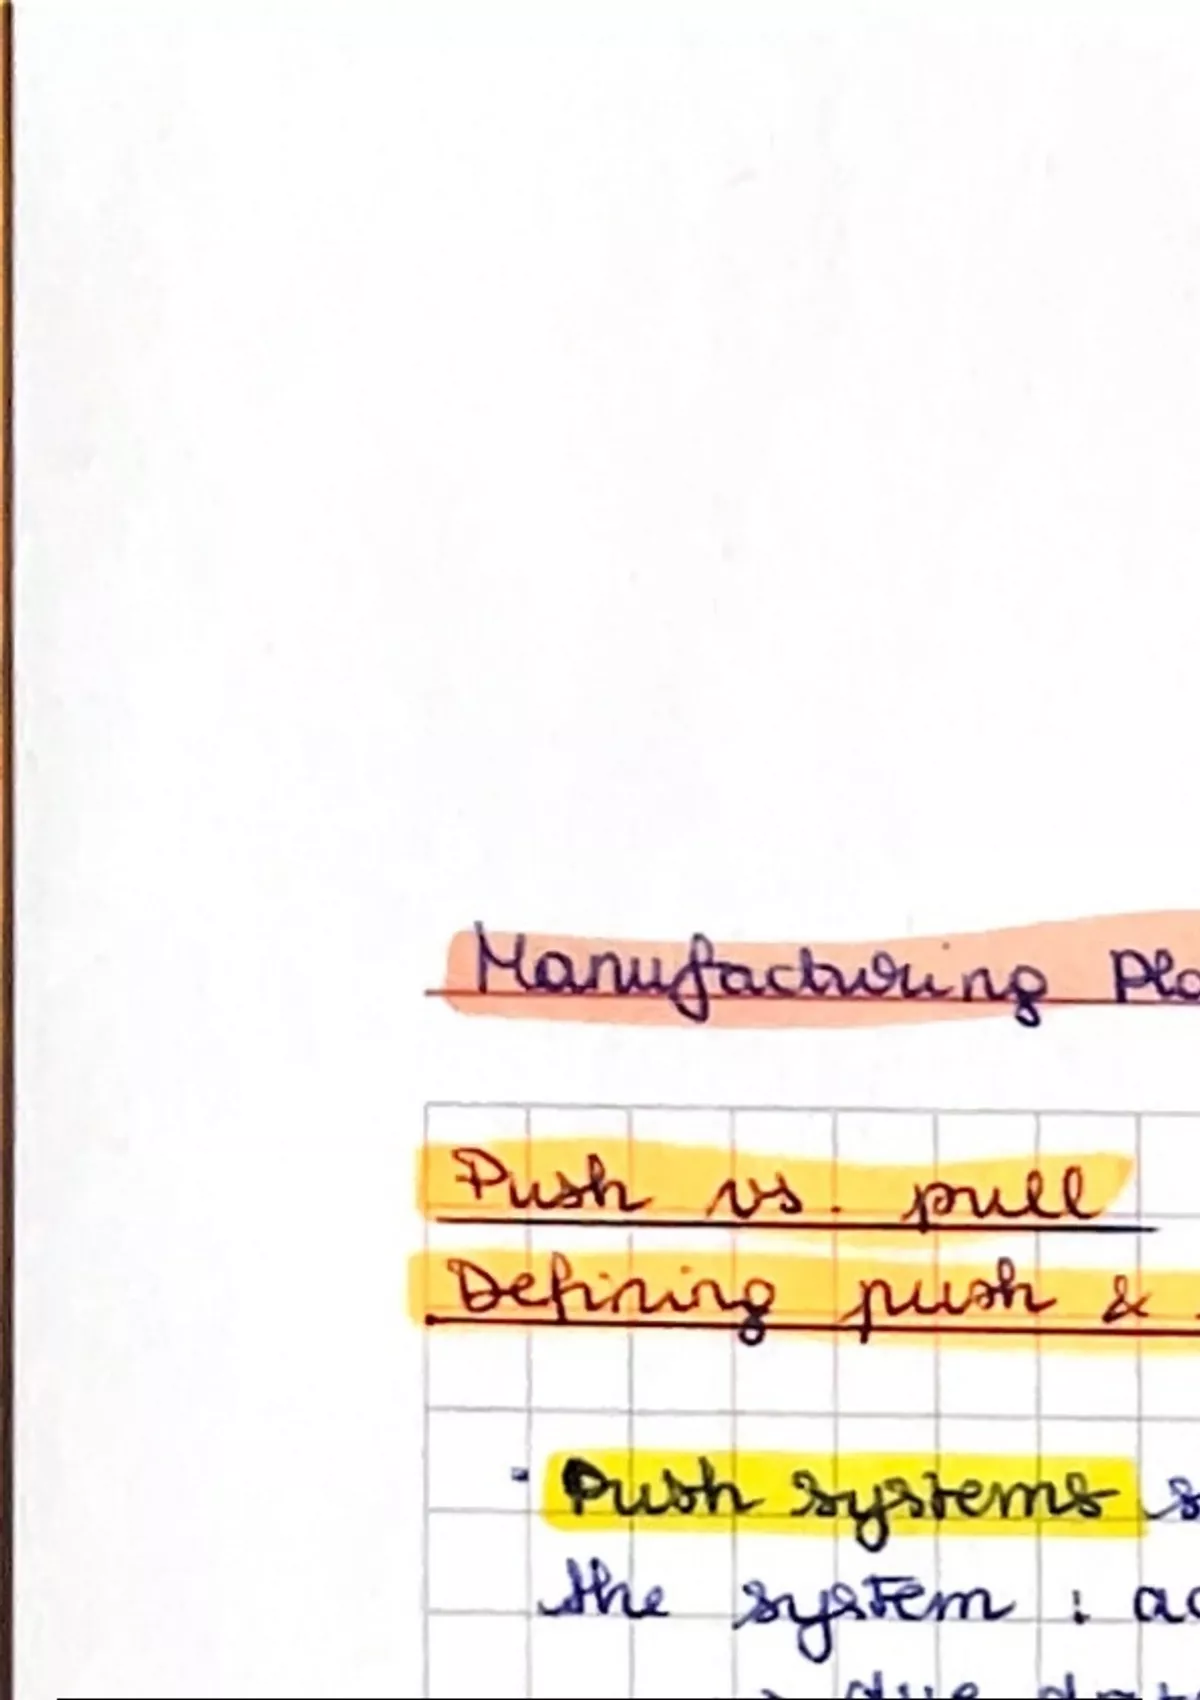 Manufacturing Pla
Push vs. pull
Defining push &
- Push systems s
the system : ac
due dat